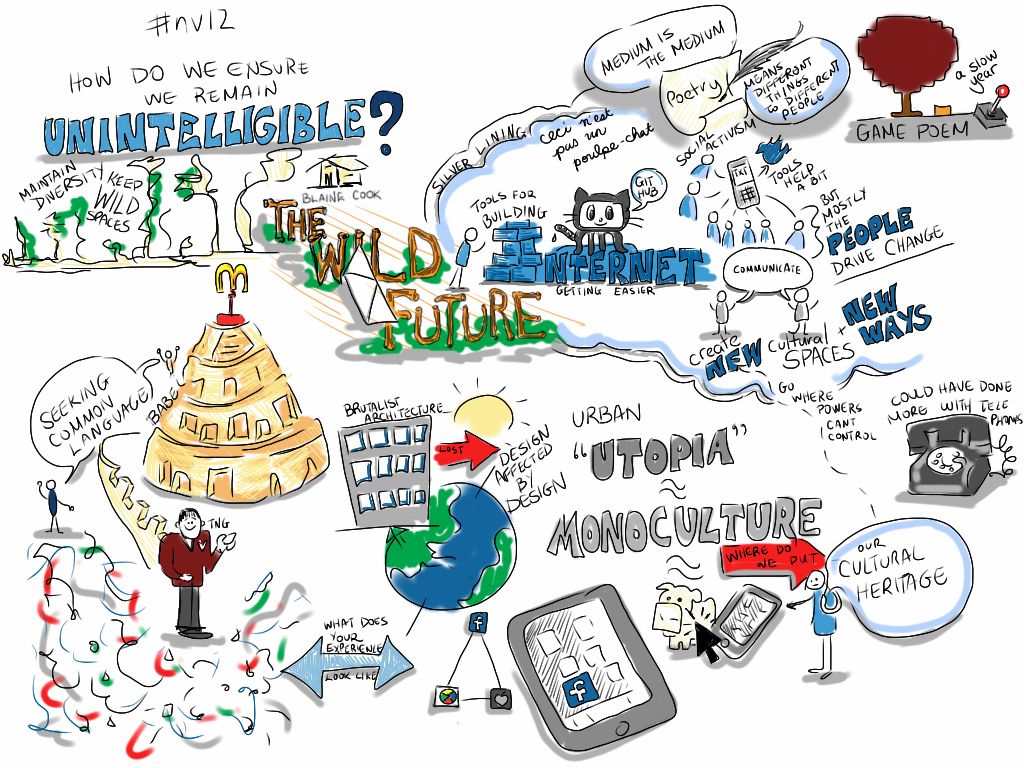 #nv12
HOW DO WE ENSURE
WE REMAIN
UNINTELLIGIBLE?
MAINTAIN
DIVERSITY
KEEP
WILD
SPACES
BLAINE COOK
THE
WILD
FUTURE
SILVER LINING
ceci n'est
pas un
poulpe-chat
TOOLS FOR
BUILDING
GIT
HUB
INTERNET
GETTING EASIER
MEDIUM IS
THE MEDIUM
Poetry
MEANS
DIFFERENT
THINGS
to DIFFERENT
PEOPLE
a slow
year
GAME POEM
SOCIAL
ACTIVISM
TXT
TOOLS
HELP
A BIT
BUT
MOSTLY
THE
PEOPLE
DRIVE CHANGE
COMMUNICATE
create
NEW cultural
SPACES
+ NEW
WAYS
GO
WHERE
POWERS
CANT
CONTROL
COULD HAVE DONE
MORE WITH TELE
PHONES
M
SEEKING
COMMON
LANGUAGE
BABEL
TNG
BRUTALIST
ARCHITECTURE
LOST
DESIGN
AFFECTED
BY
DESIGN
URBAN
"UTOPIA"
≈
MONOCULTURE
≈
WHERE DO
WE PUT
OUR
CULTURAL
HERITAGE
WHAT DOES
YOUR
EXPERIENCE
LOOK LIKE
f
f